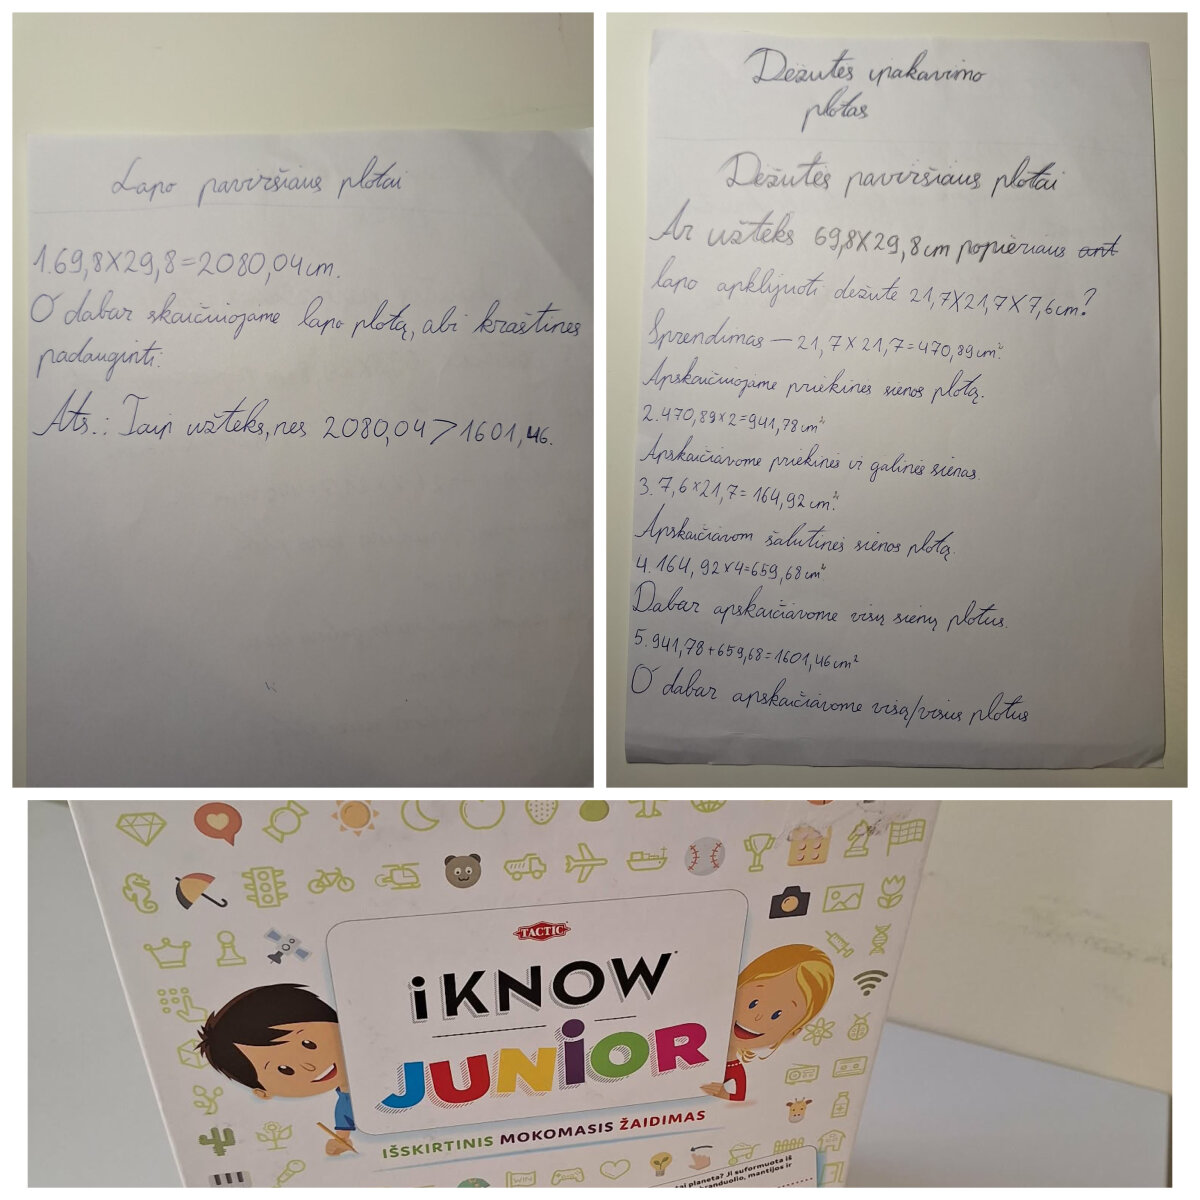 Lapo paviršiaus plotai
1.69,8X29,8=2080,04cm.
O dabar skaičiuojame lapo plotą, abi kraštines
padauginti.
Ats.: Taip užteks, nes 2080,04>1601,46.
Dėžutės įpakavimo
plotas
Dėžutės paviršiaus plotai
Ar užteks 69,8X29,8cm popieriaus ant
lapo apklijuoti dėžutę 21,7X21,7X7,6cm?
Sprendimas — 21,7X21,7=470,89cm².
Apskaičiuojame priekinės sienos plotą.
2.470,89x2=941,78cm².
Apskaičiavome priekinės ir galinės sienas.
3.7,6x21,7=164,92cm².
Apskaičiavom šalutinės sienos plotą.
4.164,92x4=659,68cm².
Dabar apskaičiavome visų sienų plotus.
5.941,78+659,68=1601,46cm²
O dabar apskaičiavome visą/visus plotus
TACTIC
iKNOW
JUNIOR
IŠSKIRTINIS MOKOMASIS ŽAIDIMAS
WIN
planeta? Ji suformuota iš
branduolio, mantijos ir